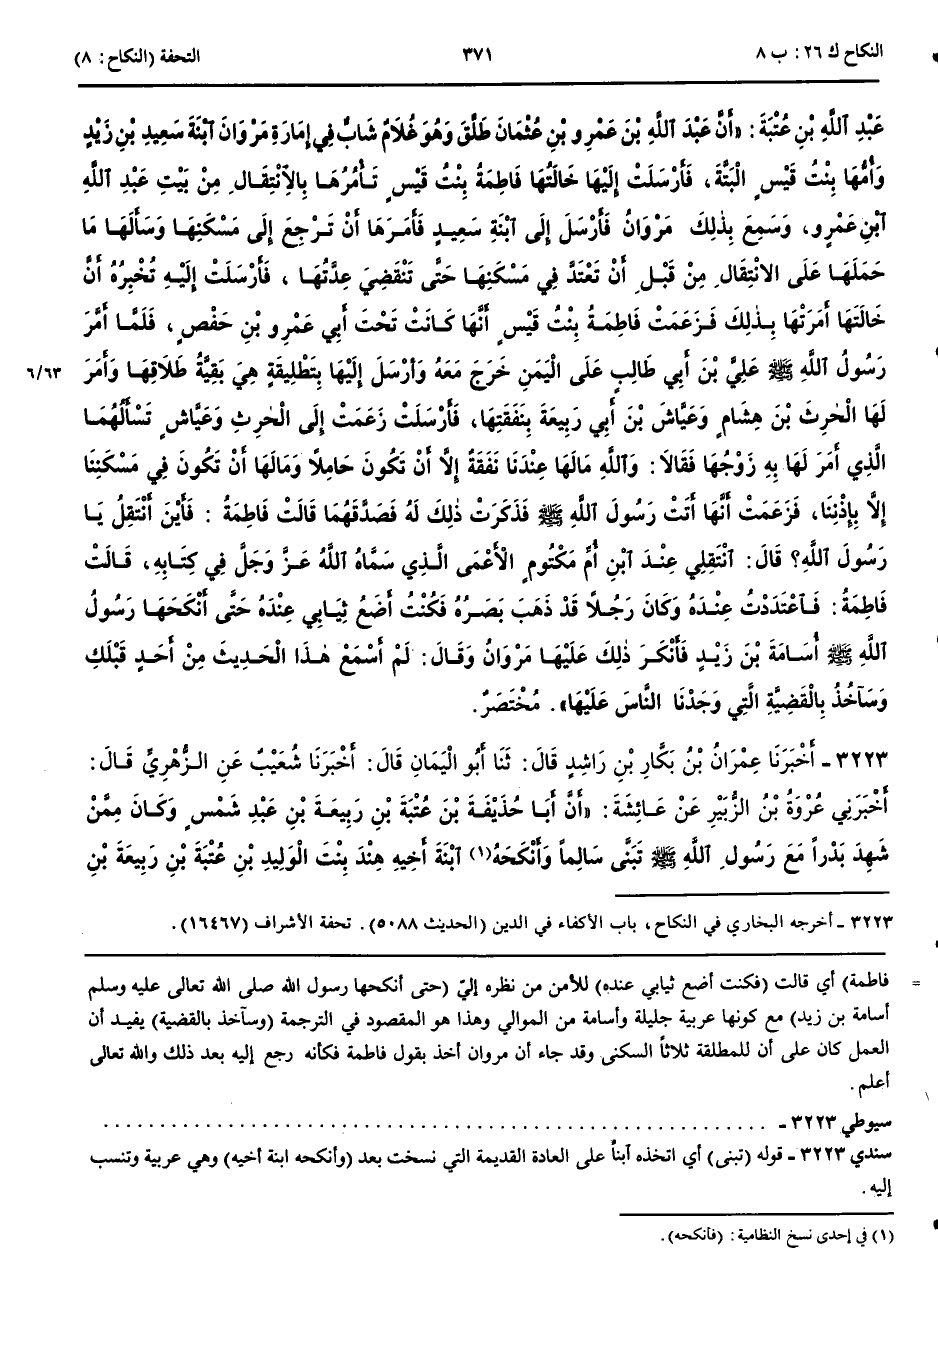 النكاح ك ٢٦: ب ٨ ٣٧١ التحفة (النكاح: ٨)
عَبْدِ ٱللَّهِ بْنِ عُتْبَةَ: «أَنَّ عَبْدَ ٱللَّهِ بْنَ عَمْرِو بْنِ عُثْمَانَ طَلَّقَ وَهُوَ غُلَامٌ شَابٌّ فِي إِمَارَةِ مَرْوَانَ ٱبْنَةَ سَعِيدِ بْنِ زَيْدٍ
وَأُمُّهَا بِنْتُ قَيْسٍ الْبَتَّةَ، فَأَرْسَلَتْ إِلَيْهَا خَالَتُهَا فَاطِمَةُ بِنْتُ قَيْسٍ تَأْمُرُهَا بِالِٱنْتِقَالِ مِنْ بَيْتِ عَبْدِ اللَّهِ
ٱبْنِ عَمْرٍو، وَسَمِعَ بِذٰلِكَ مَرْوَانُ فَأَرْسَلَ إِلَى ٱبْنَةِ سَعِيدٍ فَأَمَرَهَا أَنْ تَرْجِعَ إِلَى مَسْكَنِهَا وَسَأَلَهَا مَا
حَمَلَهَا عَلَى الانْتِقَالِ مِنْ قَبْلِ أَنْ تَعْتَدَّ فِي مَسْكَنِهَا حَتَّى تَنْقَضِيَ عِدَّتُهَا، فَأَرْسَلَتْ إِلَيْهِ تُخْبِرُهُ أَنَّ
خَالَتَهَا أَمَرَتْهَا بِذٰلِكَ فَزَعَمَتْ فَاطِمَةُ بِنْتُ قَيْسٍ أَنَّهَا كَانَتْ تَحْتَ أَبِي عَمْرِو بْنِ حَفْصٍ، فَلَمَّا أَمَّرَ
رَسُولُ ٱللَّهِ ﷺ عَلِيَّ بْنَ أَبِي طَالِبٍ عَلَى الْيَمَنِ خَرَجَ مَعَهُ وَأَرْسَلَ إِلَيْهَا بِتَطْلِيقَةٍ هِيَ بَقِيَّةُ طَلَاقِهَا وَأَمَرَ ٦/٦٣
لَهَا الْحٰرِثَ بْنَ هِشَامٍ وَعَيَّاشَ بْنَ أَبِي رَبِيعَةَ بِنَفَقَتِهَا، فَأَرْسَلَتْ زَعَمَتْ إِلَى الْحٰرِثِ وَعَيَّاشٍ تَسْأَلُهُمَا
الَّذِي أَمَرَ لَهَا بِهِ زَوْجُهَا فَقَالَا: وَٱللَّهِ مَالَهَا عِنْدَنَا نَفَقَةٌ إِلَّا أَنْ تَكُونَ حَامِلًا وَمَالَهَا أَنْ تَكُونَ فِي مَسْكَنِنَا
إِلَّا بِإِذْنِنَا، فَزَعَمَتْ أَنَّهَا أَتَتْ رَسُولَ ٱللَّهِ ﷺ فَذَكَرَتْ ذٰلِكَ لَهُ فَصَدَّقَهُمَا قَالَتْ فَاطِمَةُ: فَأَيْنَ أَنْتَقِلُ يَا
رَسُولَ ٱللَّهِ؟ قَالَ: ٱنْتَقِلِي عِنْدَ ٱبْنِ أُمِّ مَكْتُومٍ الْأَعْمَى الَّذِي سَمَّاهُ ٱللَّهُ عَزَّ وَجَلَّ فِي كِتَابِهِ، قَالَتْ
فَاطِمَةُ: فَٱعْتَدَدْتُ عِنْدَهُ وَكَانَ رَجُلًا قَدْ ذَهَبَ بَصَرُهُ فَكُنْتُ أَضَعُ ثِيَابِي عِنْدَهُ حَتَّى أَنْكَحَهَا رَسُولُ
ٱللَّهِ ﷺ أُسَامَةَ بْنَ زَيْدٍ فَأَنْكَرَ ذٰلِكَ عَلَيْهَا مَرْوَانُ وَقَالَ: لَمْ أَسْمَعْ هٰذَا الْحَدِيثَ مِنْ أَحَدٍ قَبْلَكِ
وَسَآخُذُ بِالْقَضِيَّةِ الَّتِي وَجَدْنَا النَّاسَ عَلَيْهَا». مُخْتَصَرٌ.
٣٢٢٣ ـ أَخْبَرَنَا عِمْرَانُ بْنُ بَكَّارِ بْنِ رَاشِدٍ قَالَ: ثَنَا أَبُو الْيَمَانِ قَالَ: أَخْبَرَنَا شُعَيْبٌ عَنِ الزُّهْرِيِّ قَالَ:
أَخْبَرَنِي عُرْوَةُ بْنُ الزُّبَيْرِ عَنْ عَائِشَةَ: «أَنَّ أَبَا حُذَيْفَةَ بْنَ عُتْبَةَ بْنِ رَبِيعَةَ بْنِ عَبْدِ شَمْسٍ وَكَانَ مِمَّنْ
شَهِدَ بَدْراً مَعَ رَسُولِ ٱللَّهِ ﷺ تَبَنَّى سَالِماً وَأَنْكَحَهُ(١) ٱبْنَةَ أَخِيهِ هِنْدَ بِنْتَ الْوَلِيدِ بْنِ عُتْبَةَ بْنِ رَبِيعَةَ بْنِ
٣٢٢٣ ـ أخرجه البخاري في النكاح، باب الأكفاء في الدين (الحديث ٥٠٨٨). تحفة الأشراف (١٦٤٦٧).
= فاطمة) أي قالت (فكنت أضع ثيابي عنده) للأمن من نظره إليّ (حتى أنكحها رسول الله صلى الله تعالى عليه وسلم
أسامة بن زيد) مع كونها عربية جليلة وأسامة من الموالي وهذا هو المقصود في الترجمة (وسآخذ بالقضية) يفيد أن
العمل كان على أن للمطلقة ثلاثاً السكنى وقد جاء أن مروان أخذ بقول فاطمة فكأنه رجع إليه بعد ذلك والله تعالى
أعلم.
سيوطي ٣٢٢٣ ـ . . . . . . . . . . . . . . . . . . . . . . . . . . . . . . . . . . . . . . . .
سندي ٣٢٢٣ ـ قوله (تبنى) أي اتخذه ٱبناً على العادة القديمة التي نسخت بعد (وأنكحه ابنة أخيه) وهي عربية وتنسب
إليه.
(١) في إحدى نسخ النظامية: (فأنكحه).